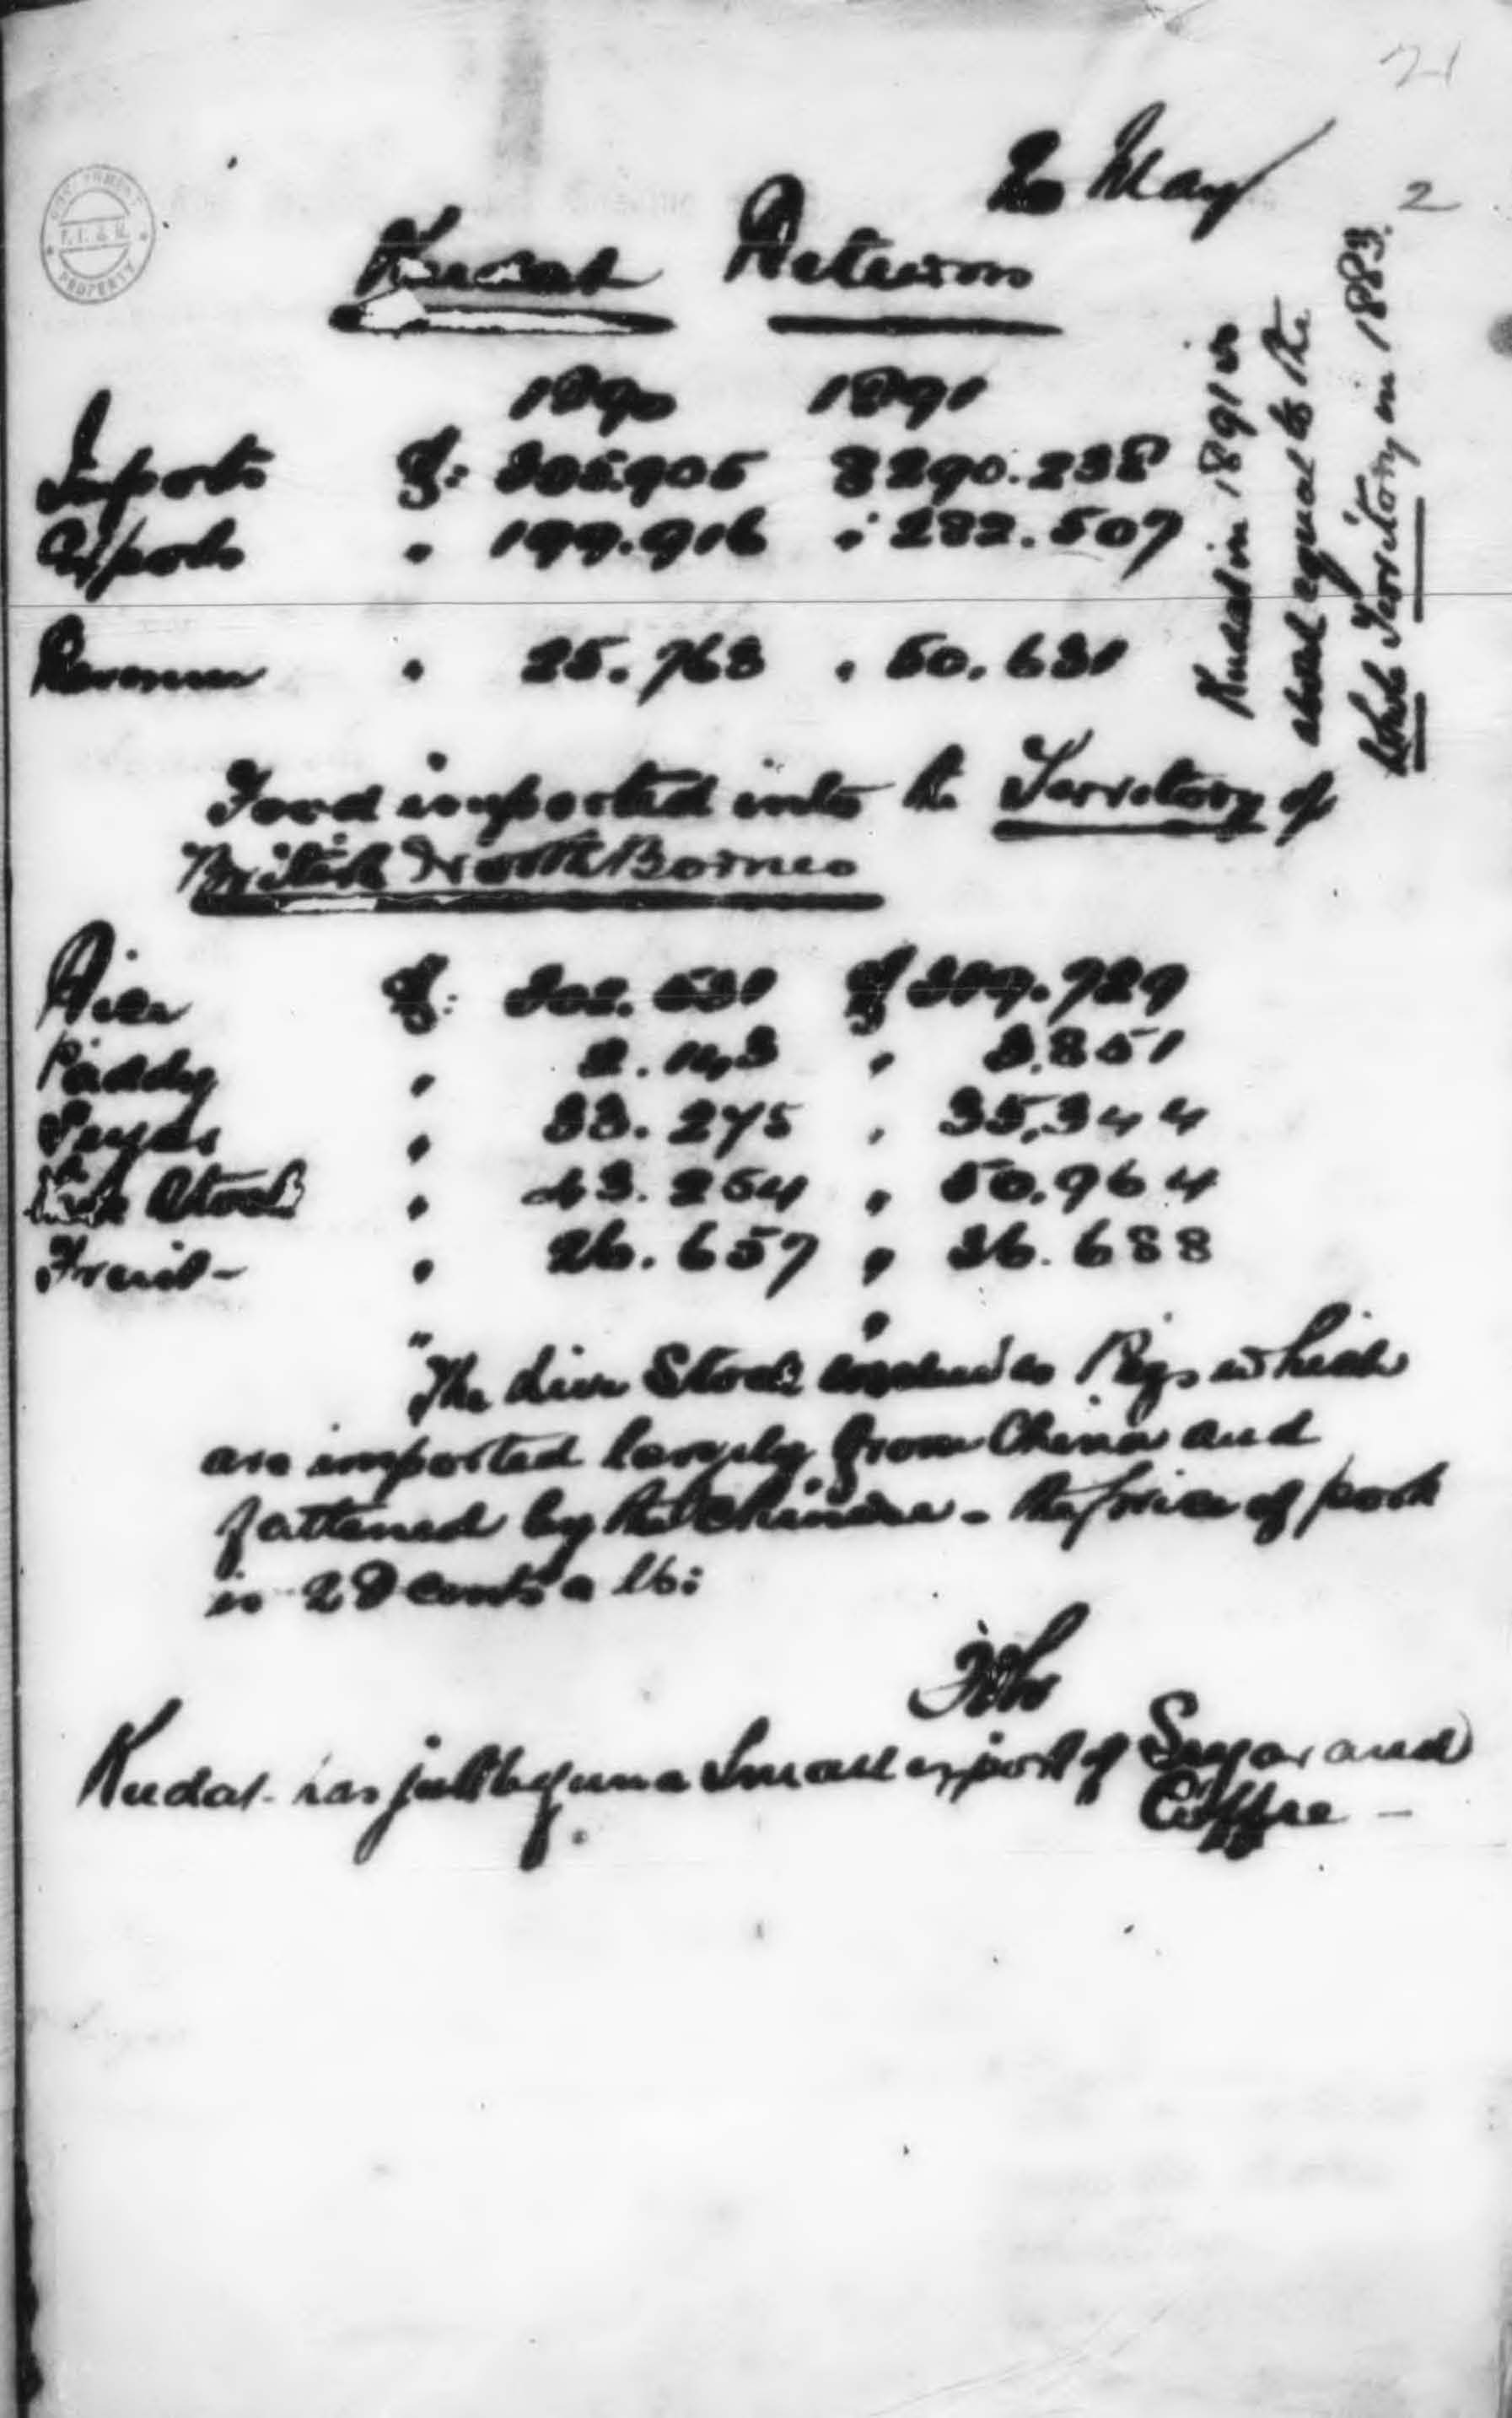 21
2
20 May
Kudat Returns
1890 1891
Imports $: 305.905 $290.238
Exports " 199.916 " 282.507
Revenue " 25.763 " 50.631
Kudat in 1891 is
about equal to the
whole Territory in 1883.
Food imported into the Territory of
British North Borneo
Rice $: 302.531 $319.729
Paddy " 2.143 " 3.851
Sugar " 33.275 " 35,344
Live Stock " 43.254 " 50.964
Fruit - " 26.657 " 36.688
"The Live Stock includes Pigs which
are imported largely from China and
fattened by the Chinese - the price of pork
is 28 cents a lb:
Kudat has just begun a small export of Sugar and
Coffee -
GOVERNMENT
PROPERTY